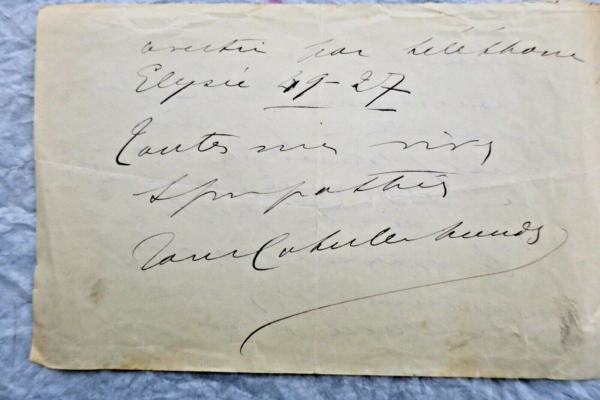 avertir par téléphone
Elysée 49-27
Toutes mes vives
sympathies
Jane Catulle Mendès